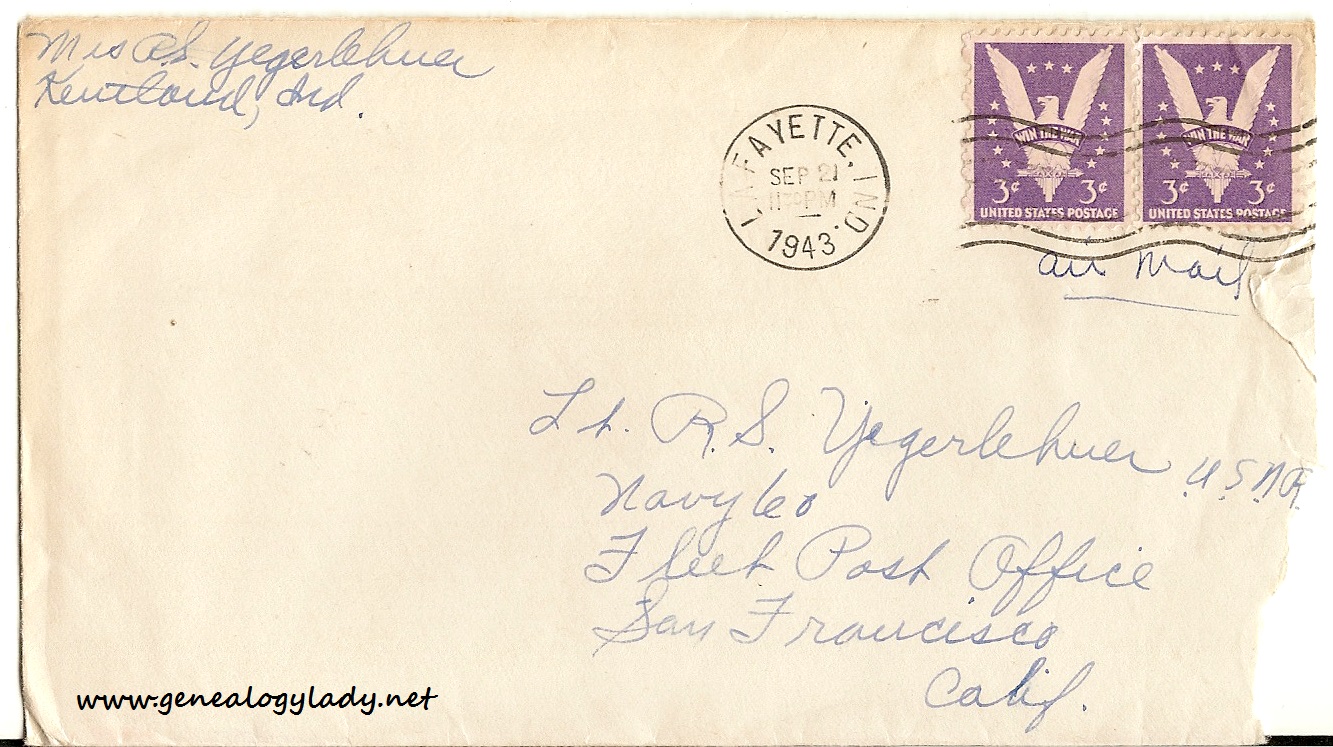 Mrs R.S. Yegerlehner
Kentland, Ind.
LAFAYETTE, IND.
SEP 21
11 30 PM
1943
WIN THE WAR
3¢ 3¢
UNITED STATES POSTAGE
WIN THE WAR
3¢ 3¢
UNITED STATES POSTAGE
air mail
Lt. R.S. Yegerlehner U.S.N.R.
Navy 60
Fleet Post Office
San Francisco
Calif.
www.genealogylady.net